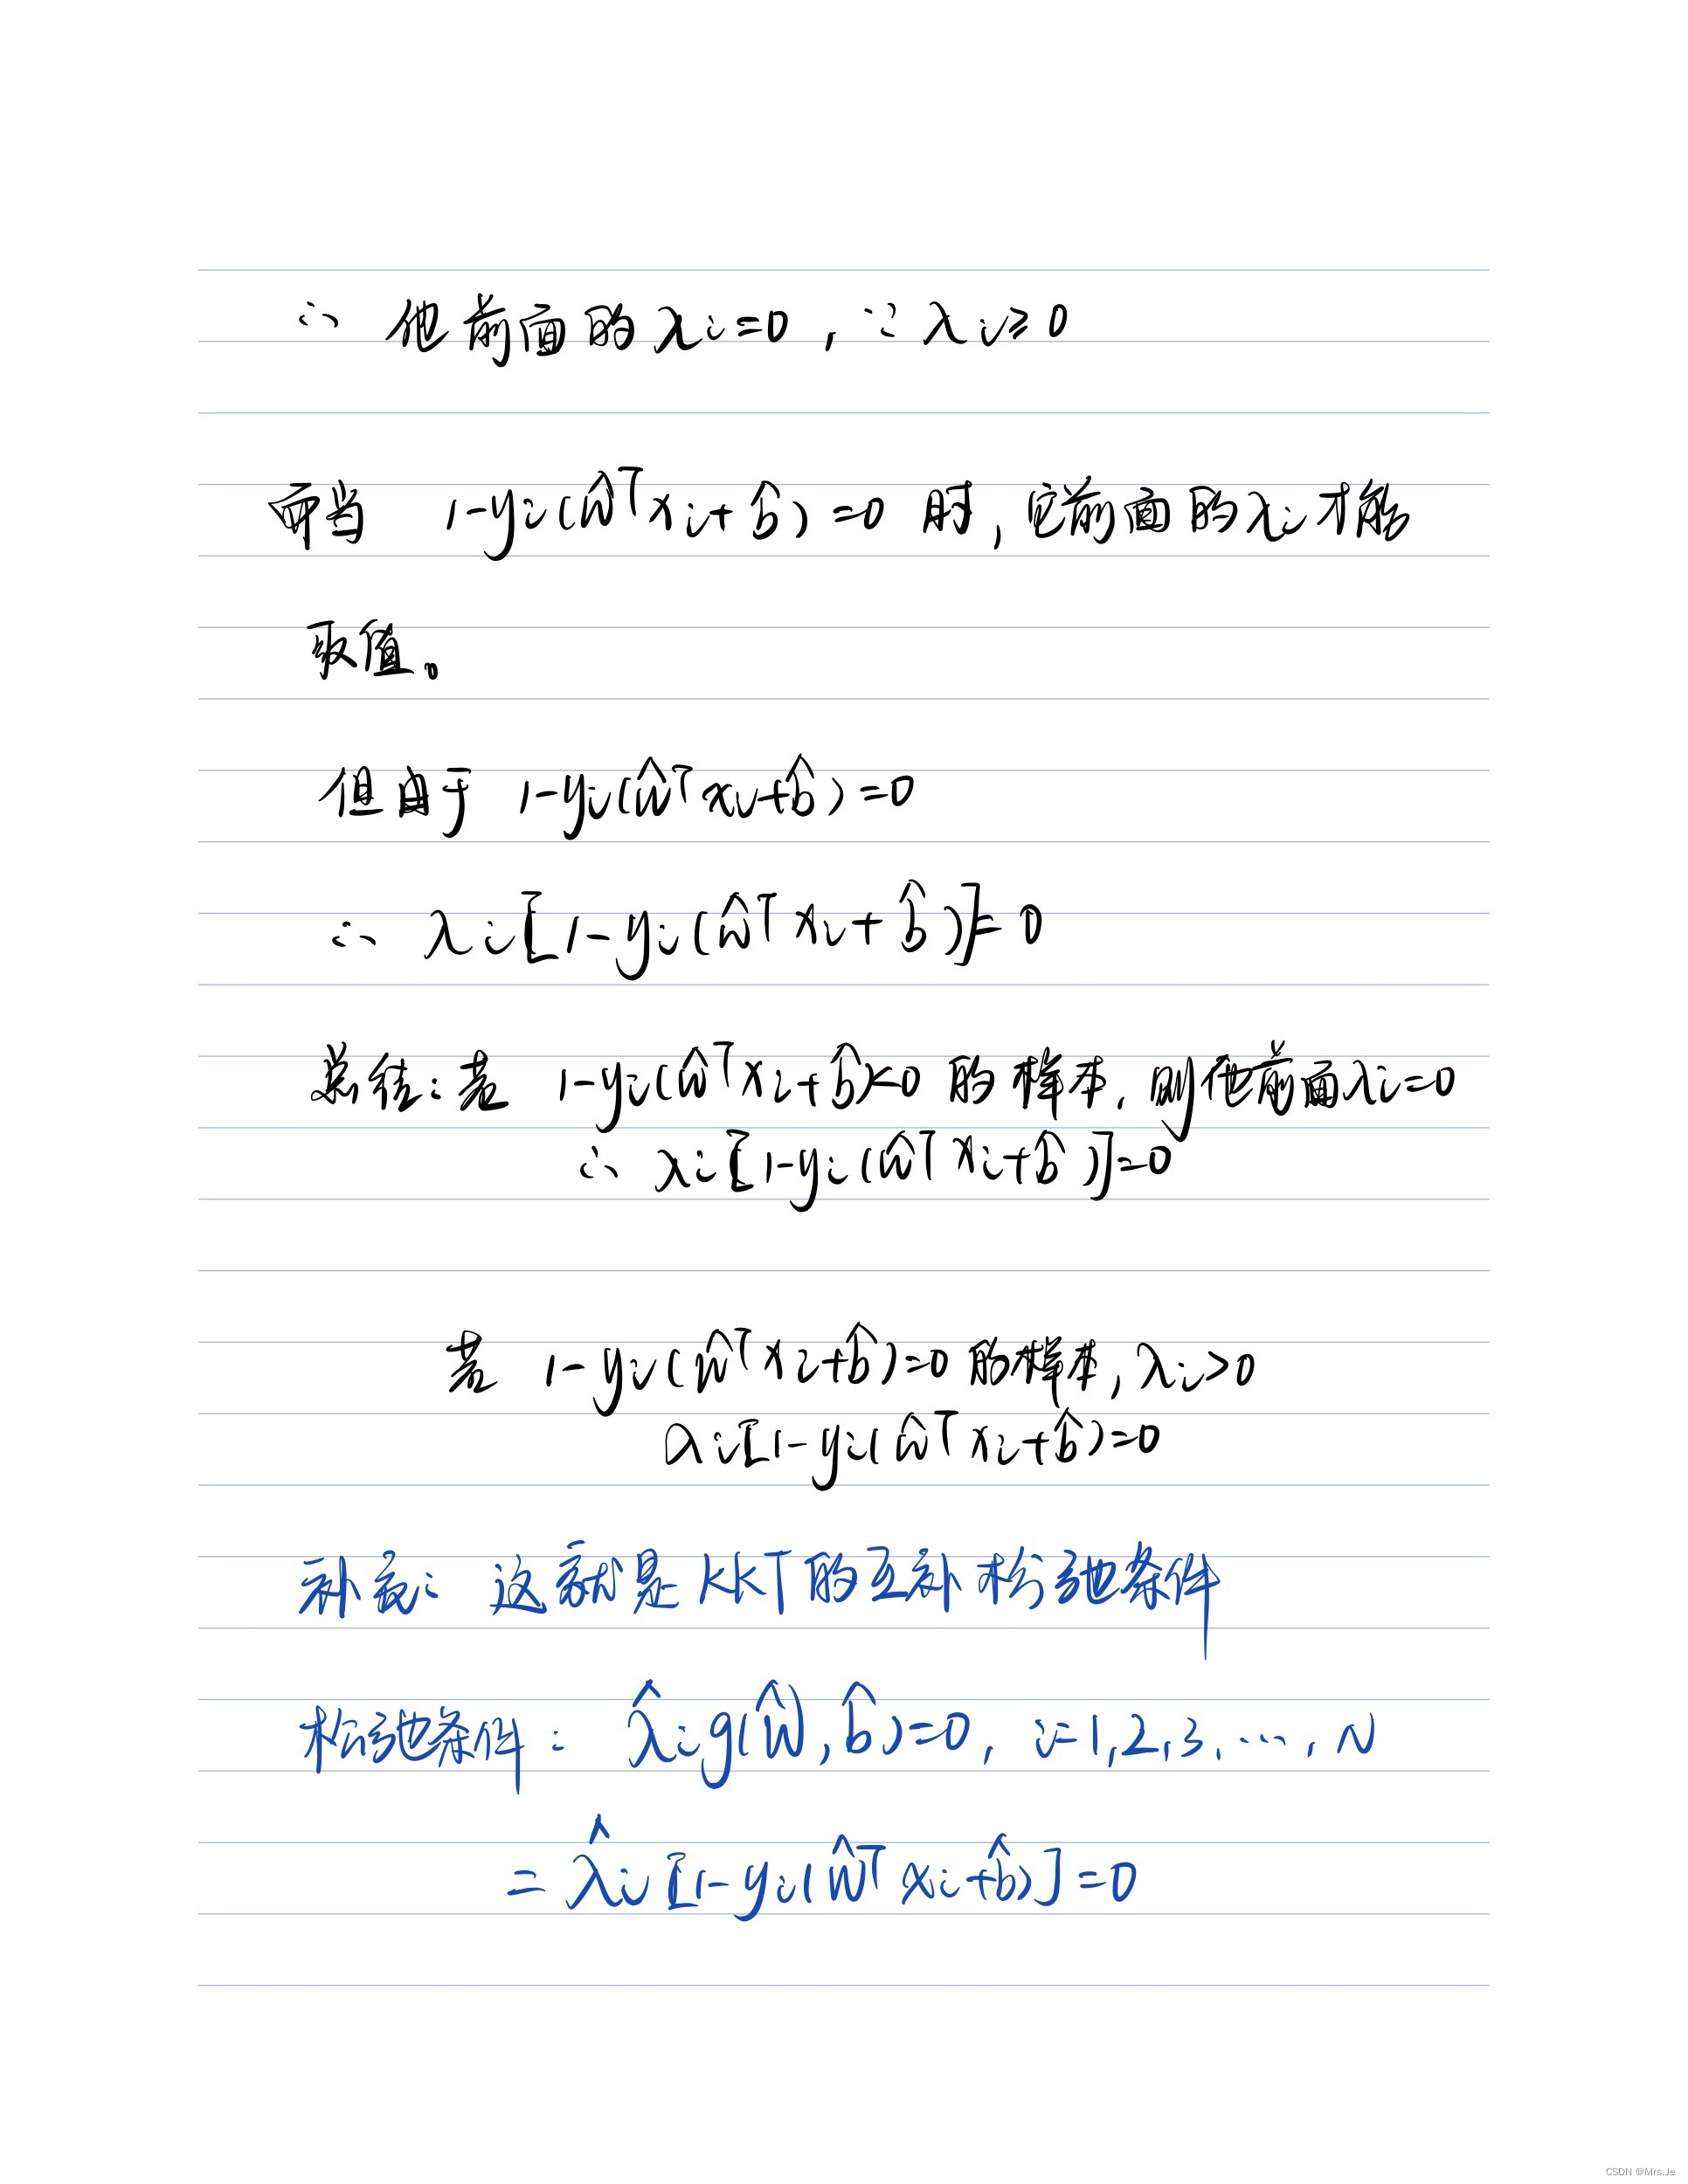 ∴ 他前面的λi=0, ∵ λi≥0
而当 1-yi(ŵᵀxi+b̂)=0 时, 它前面的λi才能
取值。
但由于 1-yi(ŵᵀxi+b̂)=0
∴ λi[1-yi(ŵᵀxi+b̂)]=0
总结: 若 1-yi(ŵᵀxi+b̂)<0 的样本, 则他前面λi=0
∴ λi[1-yi(ŵᵀxi+b̂)]=0
若 1-yi(ŵᵀxi+b̂)=0 的样本, λi>0
λi[1-yi(ŵᵀxi+b̂)=0
补充: 这就是KKT的互补松弛条件
松弛条件: λ̂i g(ŵ), b̂)=0, i=1,2,3,...,N
= λ̂i[1-yi(ŵᵀxi+b̂)]=0
CSDN @Mrs.Je